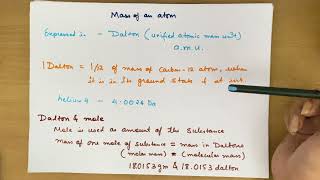 Mass of an atom
Expressed in - Dalton (unified atomic mass unit)
a.m.u.
1 Dalton = 1/12 of mass of Carbon-12 atom, when
it is in its ground state & at rest
helium 4 - 4.0026 Da
Dalton & mole
Mole is used as amount of the substance
mass of one mole of substance = mass in Daltons
(molar mass) = (molecular mass)
18.0153 gm & 18.0153 dalton